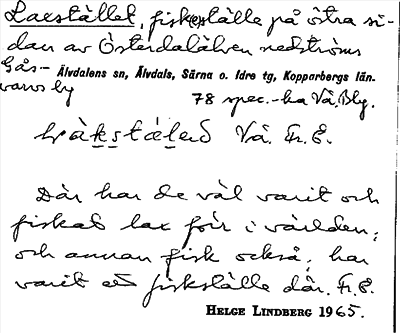 Laxstället, fiskställe på östra si-
dan av Österdalälven nedströms
Gås-
Älvdalens sn, Älvdals, Särna o. Idre tg, Kopparbergs län.
varvs by
78 spec.-ka Vå. Blg.
Vå. Fr. E.
Där har de väl varit och
fiskat lax förr i världen,
och annan fisk också, har
varit ett fiskställe där. Fr. E.
HELGE LINDBERG 1965.